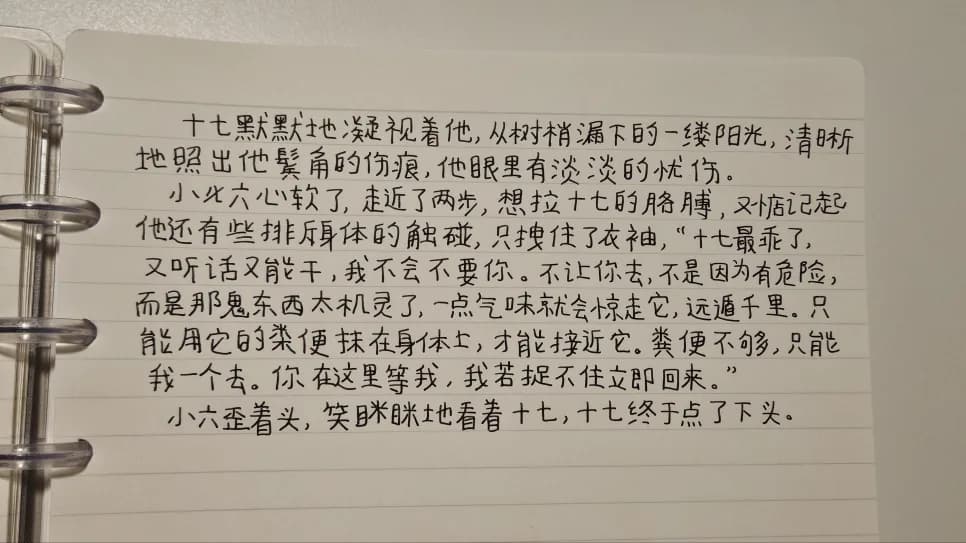 十七默默地凝视着他,从树梢漏下的一缕阳光,清晰
地照出他鬓角的伤痕,他眼里有淡淡的忧伤。
小六心软了,走近了两步,想拉十七的胳膊,又惦记起
他还有些排斥身体的触碰,只拽住了衣袖,“十七最乖了,
又听话又能干,我不会不要你。不让你去,不是因为有危险,
而是那鬼东西太机灵了,一点气味就会惊走它,远遁千里。只
能用它的粪便抹在身体上,才能接近它。粪便不够,只能
我一个去。你在这里等我,我若捉不住立即回来。”
小六歪着头,笑眯眯地看着十七,十七终于点了下头。